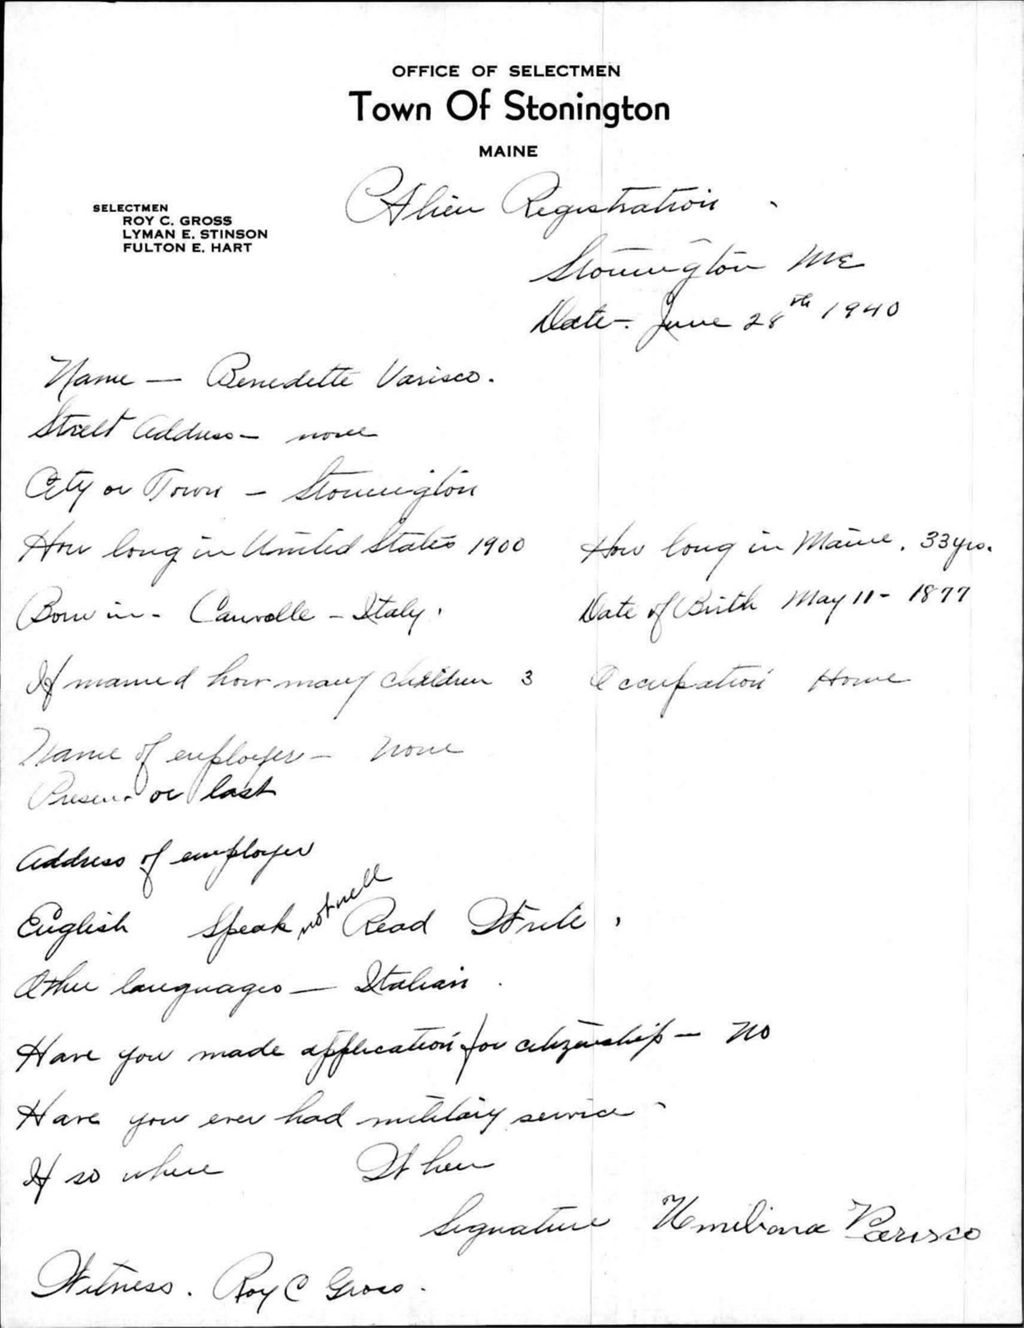 OFFICE OF SELECTMEN
Town Of Stonington
MAINE
SELECTMEN
ROY C. GROSS
LYMAN E. STINSON
FULTON E. HART
Alien Registration
Stonington Me
Date - June 28th 1940
Name - Benedette Varisco.
Street Address - none
City or Town - Stonington
How long in United States 1900 How long in Maine. 33 yrs.
Born in - Italy. Date of Birth May 11 - 1877
If married how many children 3 Occupation Home
Name of employer - none
Present or last
Address of employer
English Speak not well Read Write.
Other languages - Italian.
Have you made application for citizenship - No
Have you ever had military service -
If so where When
Signature Varisco
Witness. Roy C Gross.